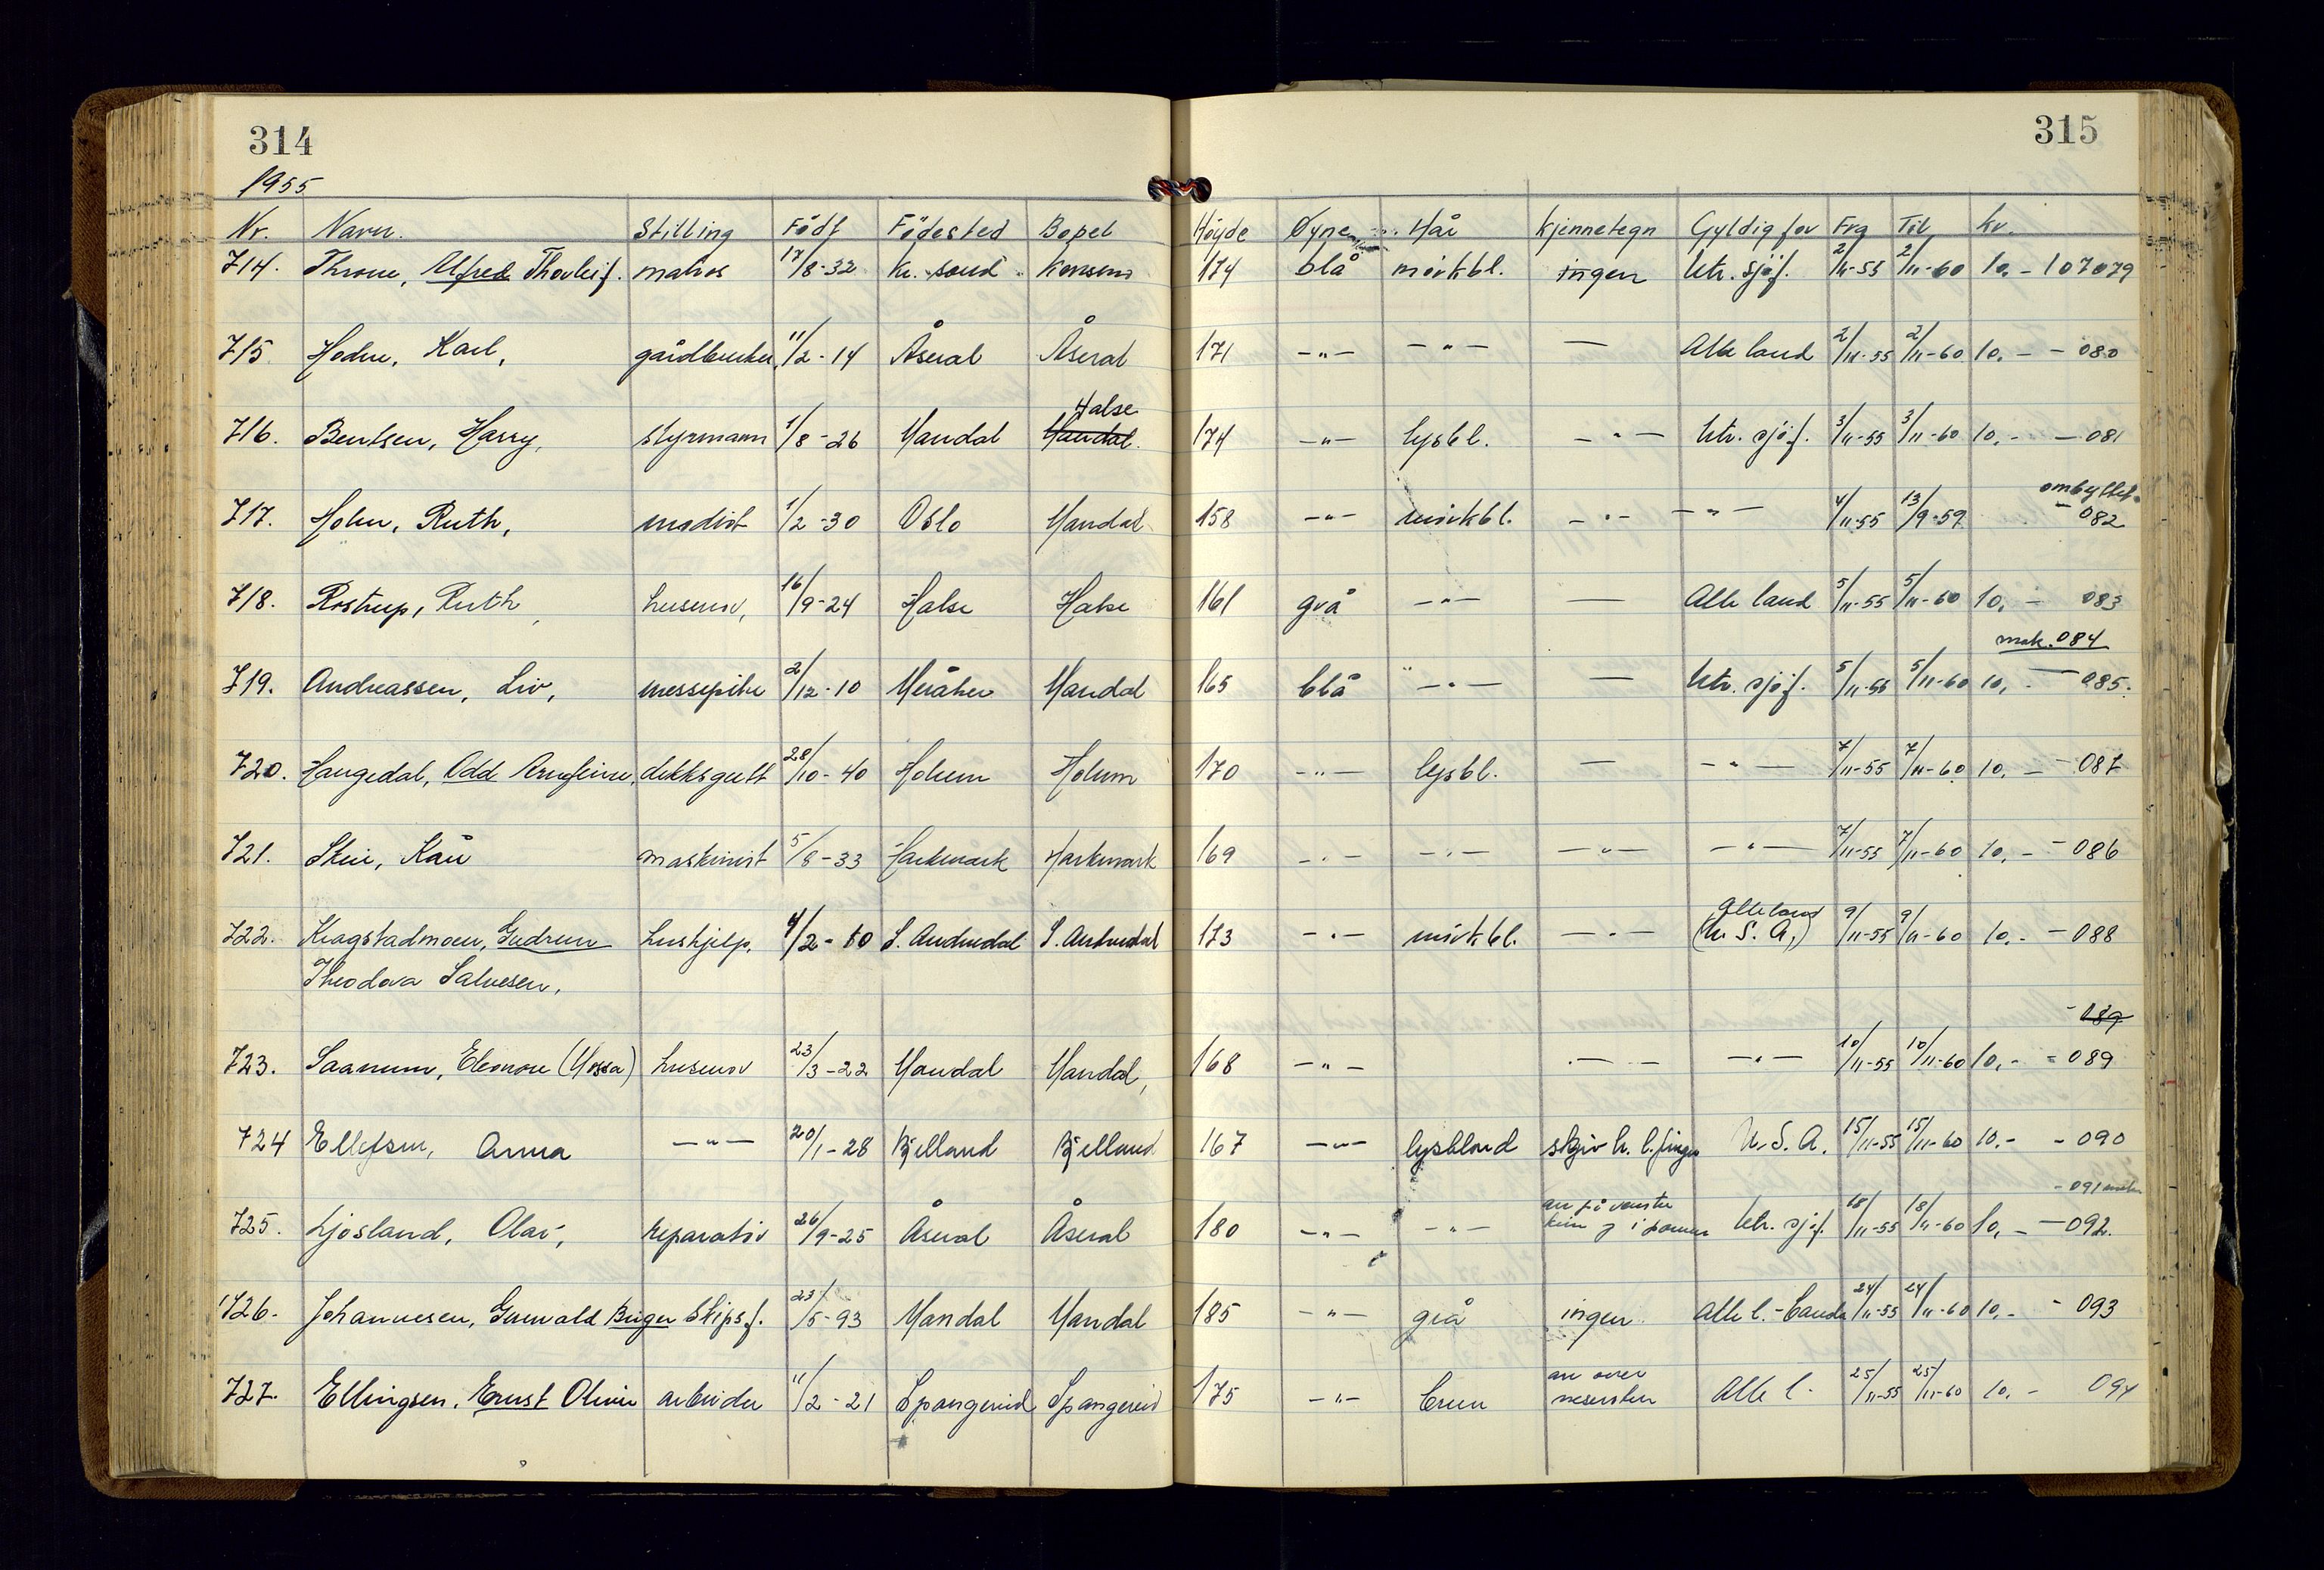 314
315
1955
Nr. Navn. Stilling Født Fødested Bopel Höyde Øyne Hår Kjennetegn Gyldig for Fra Til kr.
714. Throne, Alfred Thorleif. matros 17/8-32 Kr. sand Konsmo 174 blå mörkbl. ingen Utr. sjöf. 2/11-55 2/11-60 10.- 107079
715. Hodne, Karl, gårdbruker, 11/2-14 Åseral Åseral 171 -"- -"- — Alle land 2/11-55 2/11-60 10.- - 080
Halse
716. Bentsen, Harry, styrmann 1/8-26 Mandal Mandal. 174 -"- lysbl. -"- Utr. sjöf. 3/11-55 3/11-60 10.- - 081
ombyttet
717. Holm, Ruth, modist 1/2-30 Oslo Mandal 158 -"- mörkbl. -"- -"- 4/11-55 13/9-59 - 082
718. Rostrup, Ruth, husmor, 16/9-24 Halse Halse 161 grå -"- — Alle land 5/11-55 5/11-60 10.- 083
mak. 084
719. Andreassen, Liv, messepike 2/12-10 Meråker Mandal 165 blå -"- — Utr. sjöf. 5/11-55 5/11-60 10.- - 085.
720. Haugedal, Odd Arnfinn, dekksgutt 28/10-40 Holum Holum 170 -"- lysbl. — -"- 7/11-55 7/11-60 10.- - 087
721. Stein, Kåre maskinist 5/8-33 Harkmark Harkmark 169 -"- -"- -"- -"- 7/11-55 7/11-60 10.- - 086
alle land
722. Kragstadmoen, Gudrun hushjelp, 4/2-10 S. Audnedal S. Audnedal 173 -"- mörkbl. -"- (U. S. A.) 9/11-55 9/11-60 10.- - 088
Theodora Salvesen,
- 089
723. Saanum, Eleonore (Mossa) husmor 23/3-22 Mandal Mandal, 168 -"- -"- -"- 10/11-55 10/11-60 10.- - 089
724 Ellefsen, Anna -"- 20/1-28 Bjelland Bjelland 167 -"- lysblond skjev h. l. finger U. S. A. 15/11-55 15/11-60 10.- - 090
arr på venstre - 091 mak
725. Ljosland, Olav, reparatör 26/9-25 Åseral Åseral 180 -"- -"- kinn og i pannen Utr. sjöf. 18/11-55 18/11-60 10.- - 092.
726. Johannesen, Gunvald Birger Skipsf. 23/5-93 Mandal Mandal 185 -"- grå ingen Alle l. - Canada 24/11-55 24/11-60 10.- - 093
arr over
727. Ellingsen, Ernst Oliver arbeider 11/2-21 Spangereid Spangereid 175 -"- brun neseroten Alle l. 25/11-55 25/11-60 10.- 094